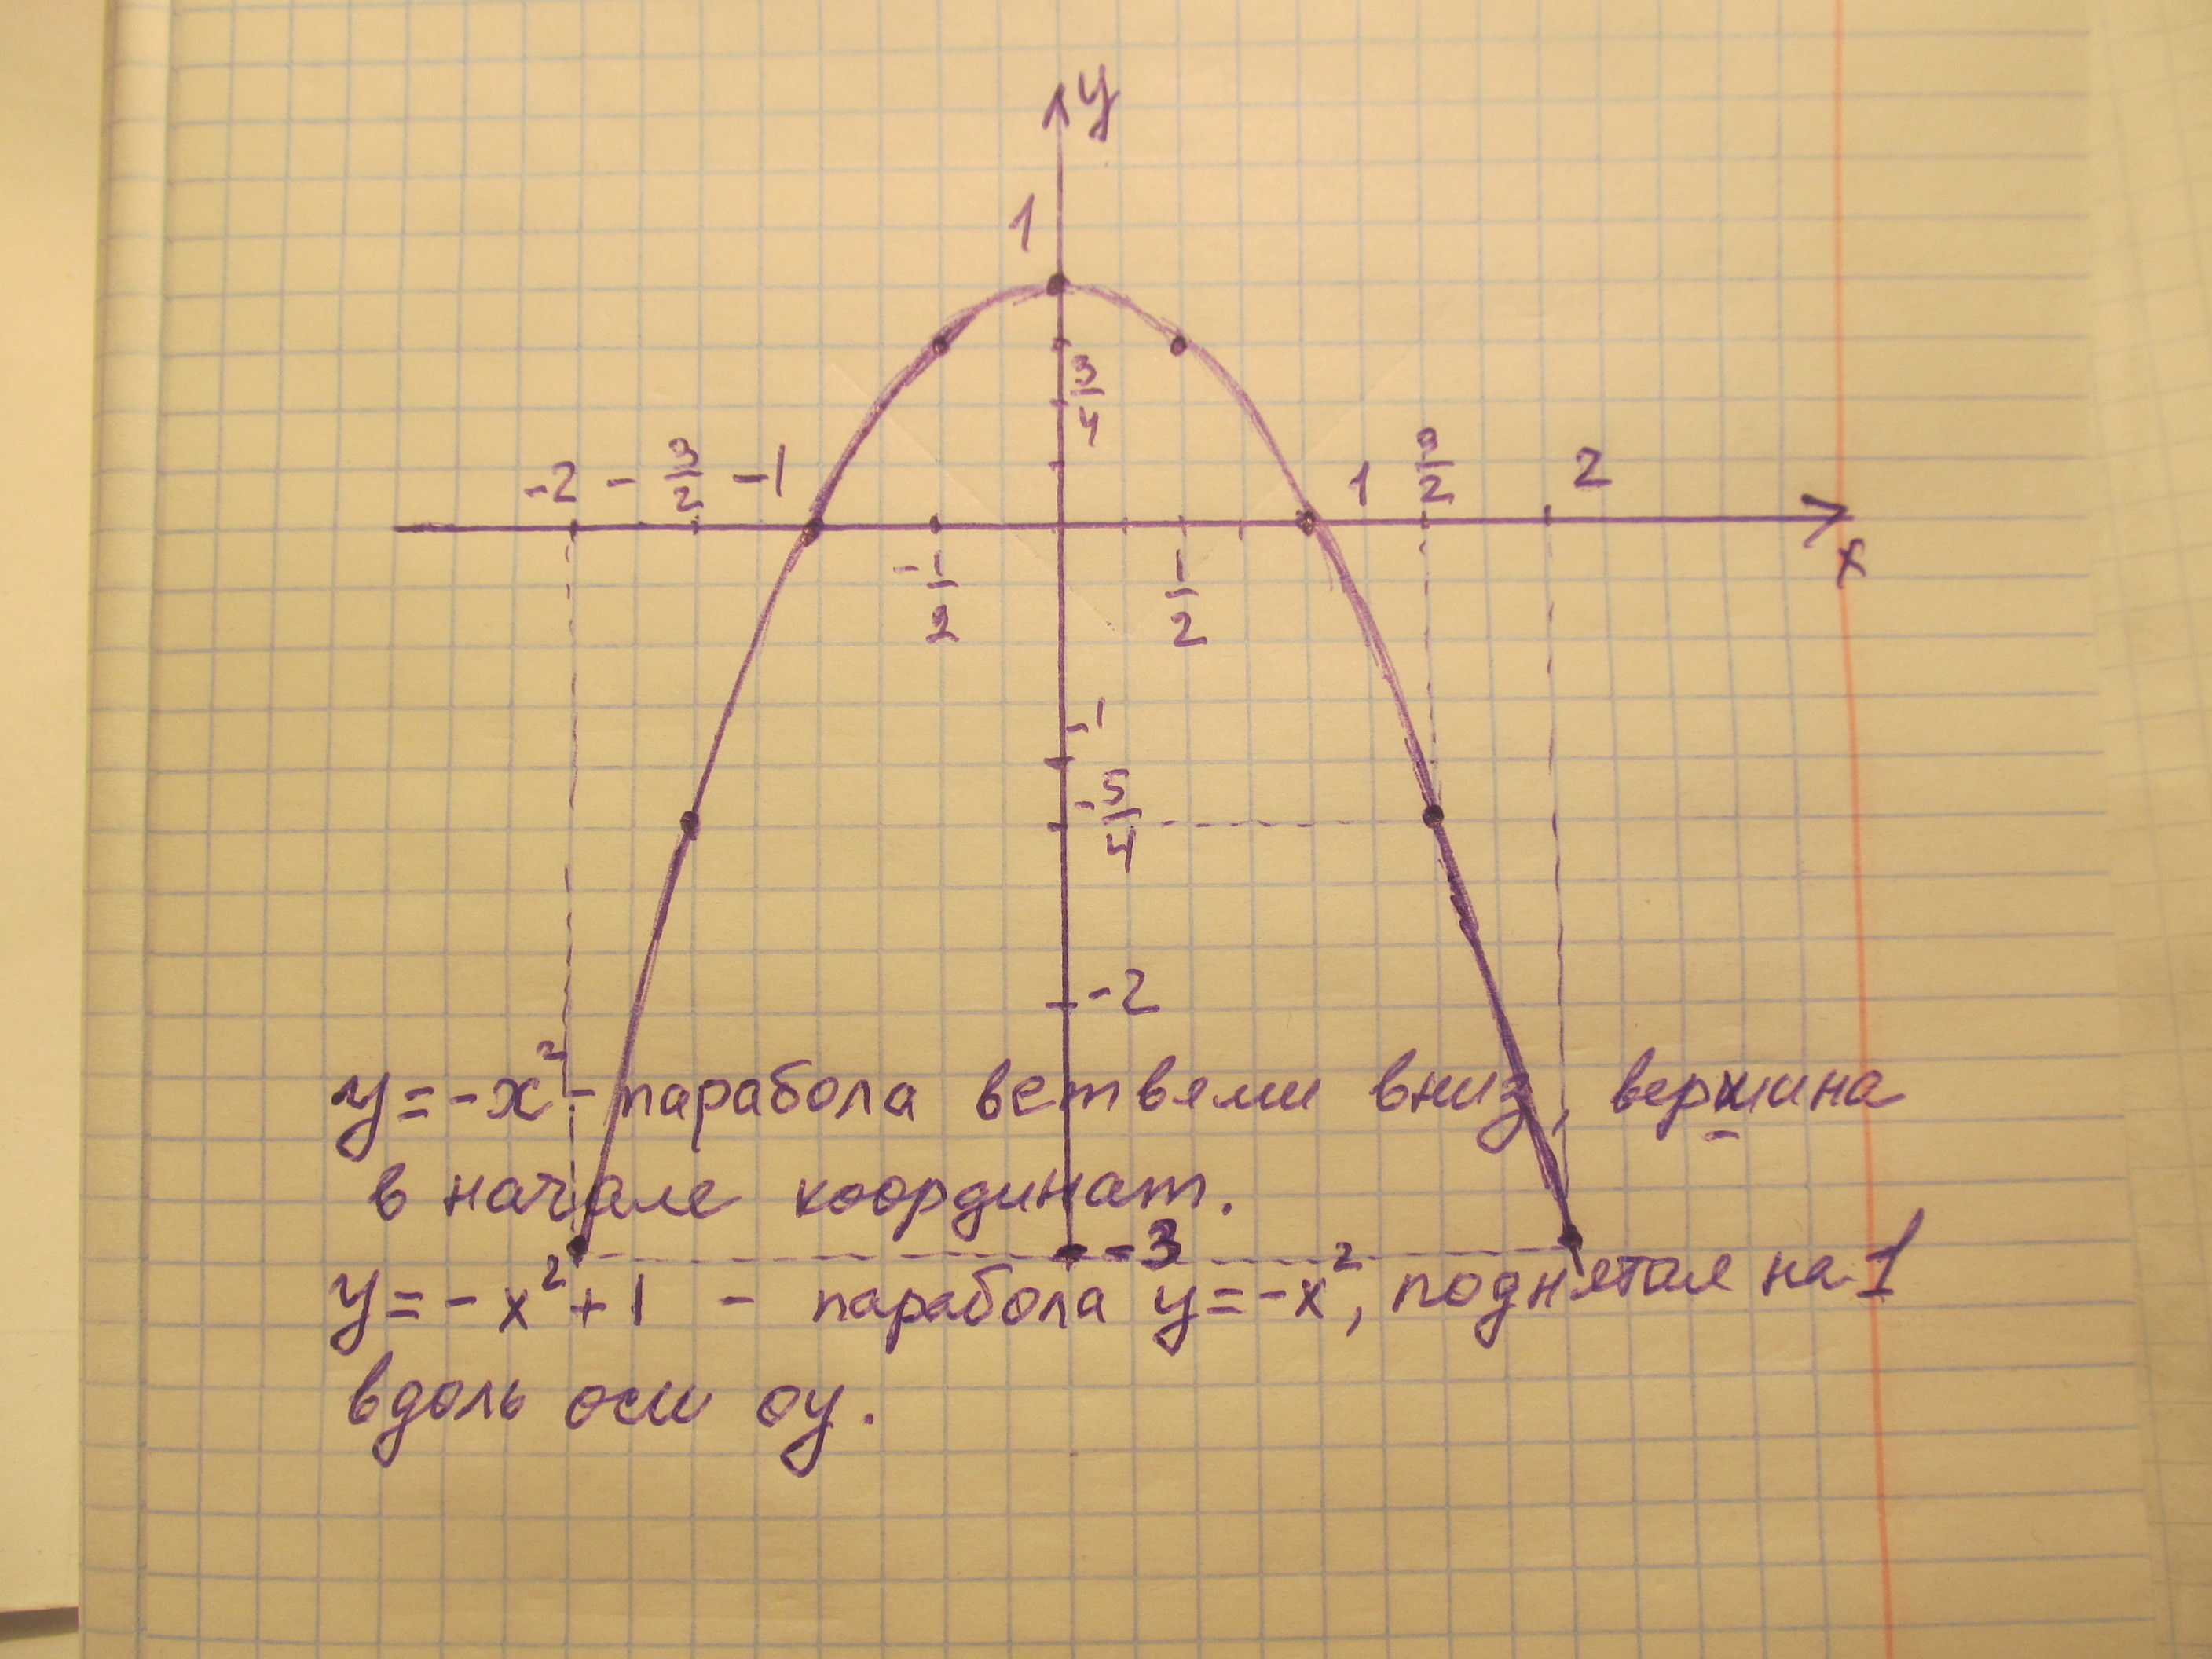 y
1
3/4
-2 -3/2 -1 1 3/2 2
x
-1/2 1/2
-1
-5/4
-2
y=-x²- парабола ветвями вниз, вершина
в начале координат.
-3
y=-x²+1 - парабола y=-x², поднятая на 1
вдоль оси oy.